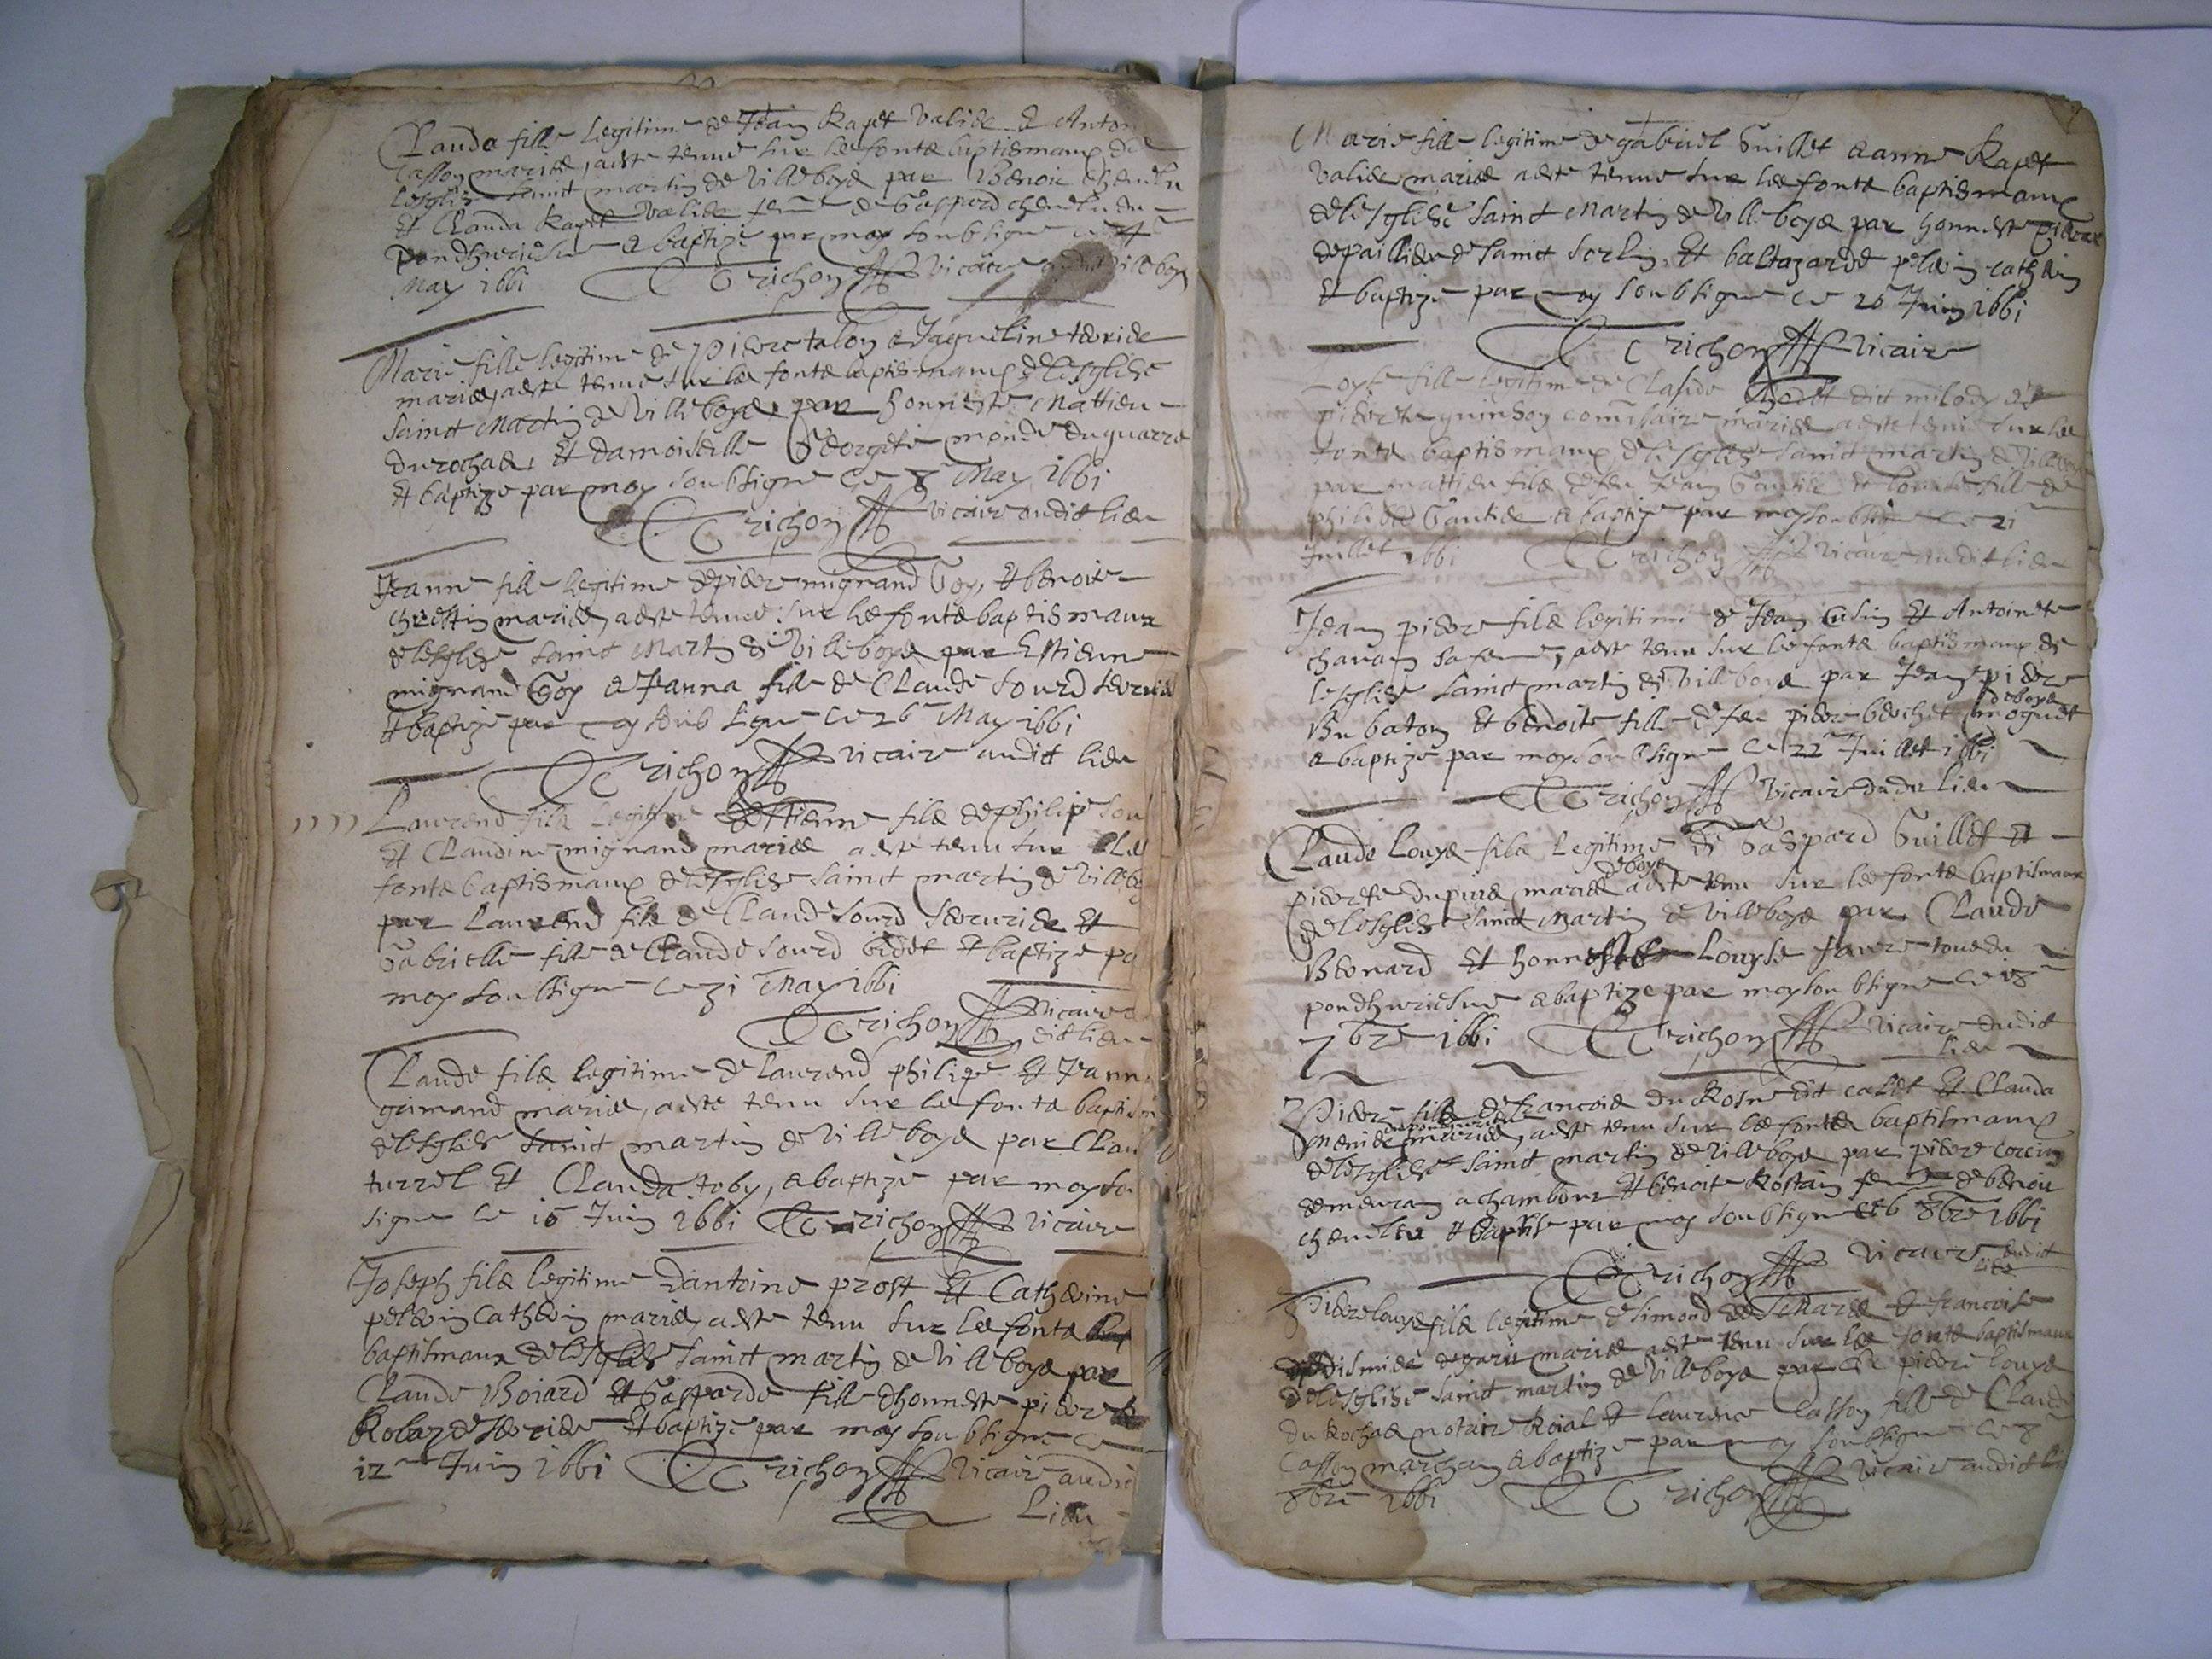 Clauda fille legitime de Jean Kapet valide & Anton
Casson mariés, a esté tenue sur les fontz baptismaux de
lesglise sainct martin de villeboys par Benoit chenelu
Et Clauda Kapet valide feme de Gasperd chenelu du
pondhuerieshue & baptizé par moy soubsigné ce 4e
May 1661 Trichon vicaire audit villeboys
Marie fille legitime de Piere talon & Jaqueline
mariés, a esté tenue sur les fontz baptismaux de lesglise
sainct Martin de villeboys, par honneste Mattieu
durochat, Et damoiselle Georgete monde duquarre
Et baptize par moy soubsigne ce 8 May 1661
Trichon vicaire audict lieu
Jeanne fille legitime de piere mignand Goy, Et benoite
chrestin mariés, a esté tenue sur les fontz baptismaux
de lesglise sainct Martin de villeboys par Estienne
mignand Goy & Jeanna fille de Claude sourd
Et baptizé par moy soub signé ce 26 May 1661
Trichon vicaire audict lieu
Laurend filz legitime destienne filz de philip sou
Et Claudine mignand mariés a esté tenu sur les
fontz baptismaux de lesglise sainct martin de villeb
par Laurend filz de Claude sourd serrurier Et
Gabrielle fille de Claude sourd bidet Et baptize pa
moy soubsigne ce 31 May 1661
Trichon vicaire
dict lieu
Claude filz legitime de laurend philipe Et Jann
grimand mariés, a esté tenu sur les fontz baptism
de lesglise sainct martin de villeboys par Clau
turrel Et Clauda toby, & baptizé par moy sou
signe ce 15 Juin 1661 Trichon vicaire
Joseph filz legitime dantoine prost Et Catherine
pelloin cathelin mariés, a esté tenu sur les fontz
baptismaux de lesglise sainct martin de villeboys par
Claude Boiard Et Gasparde fille dhonneste piere
Kobaz Et baptizé par moy soubsigné ce
12e Juin 1661 Trichon vicaire audic
Lieu
Marie fille legitime de gabriel Guillet & anne Kapet
valide mariés a esté tenue sur les fontz baptismaux
de lesglise sainct Martin de villeboys par honneste piere
depaillier de sainct sorlin, Et baltazarde pelloin cathelin
Et baptizé par moy soubsigne ce 26 Juin 1661
Trichon vicaire
Loyse fille legitime de Claude dict milody &
pierete guinson mariés a esté tenue sur les
fontz baptismaux de lesglise sainct martin de villeboys
par mattieu filz de feu Jean Gantier & fille de
philibert Gantier & baptizé par moy soubsigné ce 21
Juillet 1661 Trichon vicaire audit lieu
Jean piere filz legitime de Jean Et Antoinete
chavan sa feme, a esté tenu sur les fontz baptismaux de
lesglise sainct martin de villeboys par Jean piere
Bubaton Et benoite fille de feu piere bechet moguet
deboys
& baptizé par moy soubsigne ce 22e Juillet 1661
Trichon vicaire dudit lieu
Claude Louys filz legitime de Gaspard Guillet Et
deboys
pierete dupuis mariés a esté tenu sur les fontz baptismaux
de lesglise sainct Martin de villeboys par Claude
Benard Et honneste Louyse
pondhuerieshue & baptizé par moy soubsigne ce 18
7bre 1661 Trichon vicaire dudict
lieu
Piere filz de francois du Rosne dit calet Et Clauda
mariés, a esté tenu sur les fontz baptismaux
de lesglise sainct martin de villeboys par piere
demeuran a chambour Et benoite Kostain feme de benoit
chenelu & baptisé par moy soubsigné ce 6 8bre 1661
Trichon vicaire audict
lieu
Piere louys filz legitime de simond Et francoise
mariés a esté tenu sur les fontz baptismaux
de lesglise sainct martin de villeboys par Me piere louys
du Rochat notaire Roial Et laurence Casson fille de Claude
Casson marchan & baptizé par moy soubsigne ce 8
8bre 1661 Trichon vicaire audict li